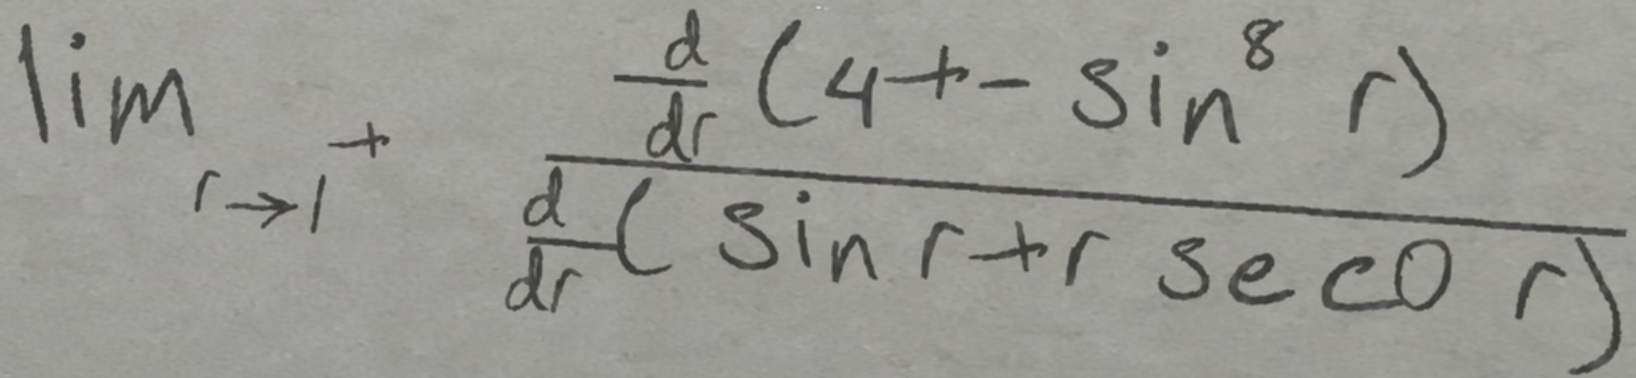 \lim_{r \to 1^+} \frac{\frac{d}{dr}(4+-\sin^8 r)}{\frac{d}{dr}(\sin r+r \sec 0 r)}